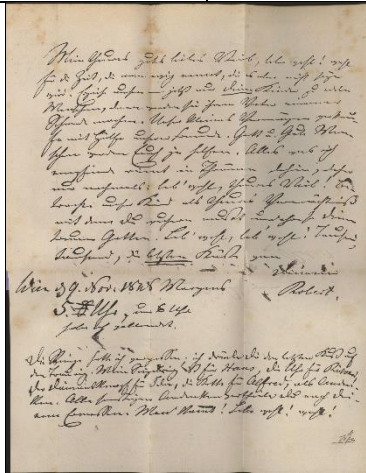 Mein theures, gutes, liebes Weib, lebe wohl! wohl
für die Zeit, die man ewig nennt, die es aber nicht
wird. Erziehe unsere jetzt nur Deine Kinder zu edlen
Menschen, dann werden sie ihrem Vater nimmer
Schande machen. Unser kleines Vermögen
mit Hülfe unserer Freunde. Gott u. gute Men-
schen werden Euch ja helfen. Alles was ich
empfinde rinnt in Thränen dahin, daher
nur nochmals: leb' wohl, theures Weib! Be-
trachte unsere Kinder als theures Vermächtniß
mit dem Du wuchern mußt und ehre so Deinen
treuen Gatten. Leb' wohl, leb' wohl! Tausend,
tausend, die letzten Küsse von
Deinem
Robert.
Wien d 9. Nov. 1848 Morgens
5 Uhr, um 6 Uhr
habe ich vollendet.
Die Ringe hatte ich vergessen; ich drücke Dir den letzten Kuß auf
den Trauring. Mein Siegelring ist für Hans, die Uhr für Richard,
der Diamantknopf für Ida, die Kette für Alfred, als Anden-
ken. Alle sonstigen Andenken vertheile Du nach Dei-
nem Ermessen. Man kommt! Lebe wohl! wohl!